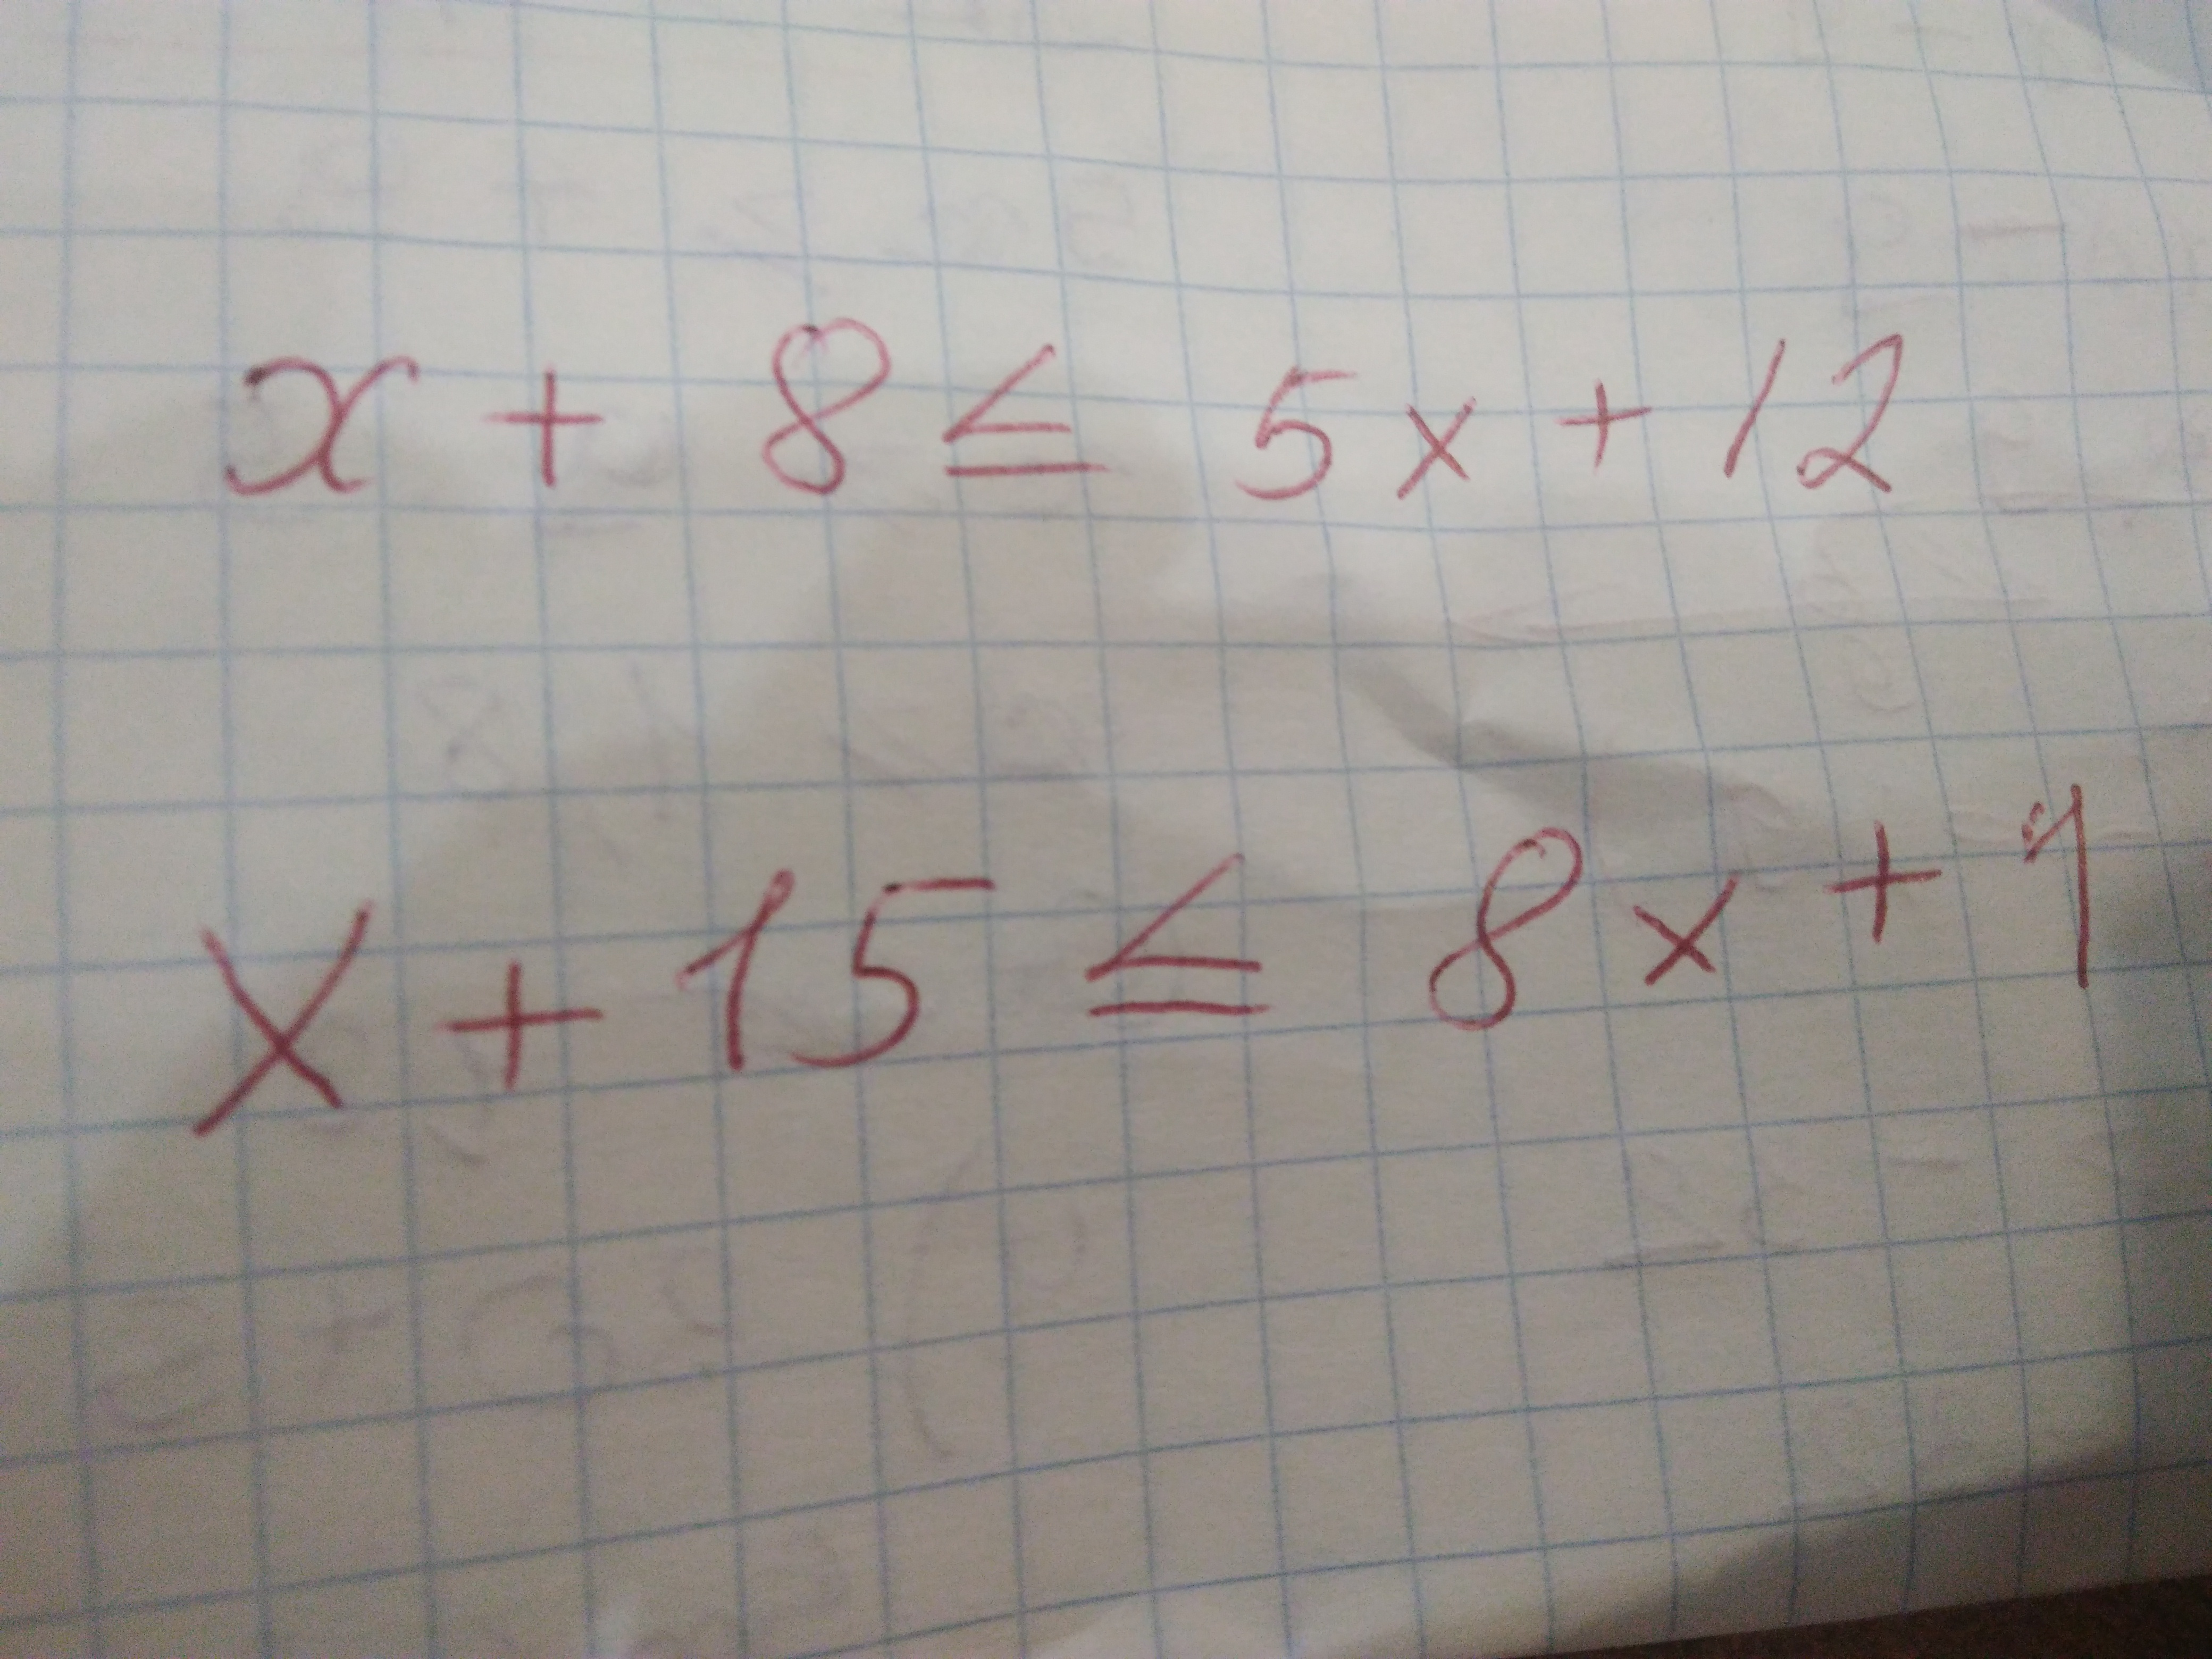 x + 8 ≤ 5x + 12
x + 15 ≤ 8x + 1